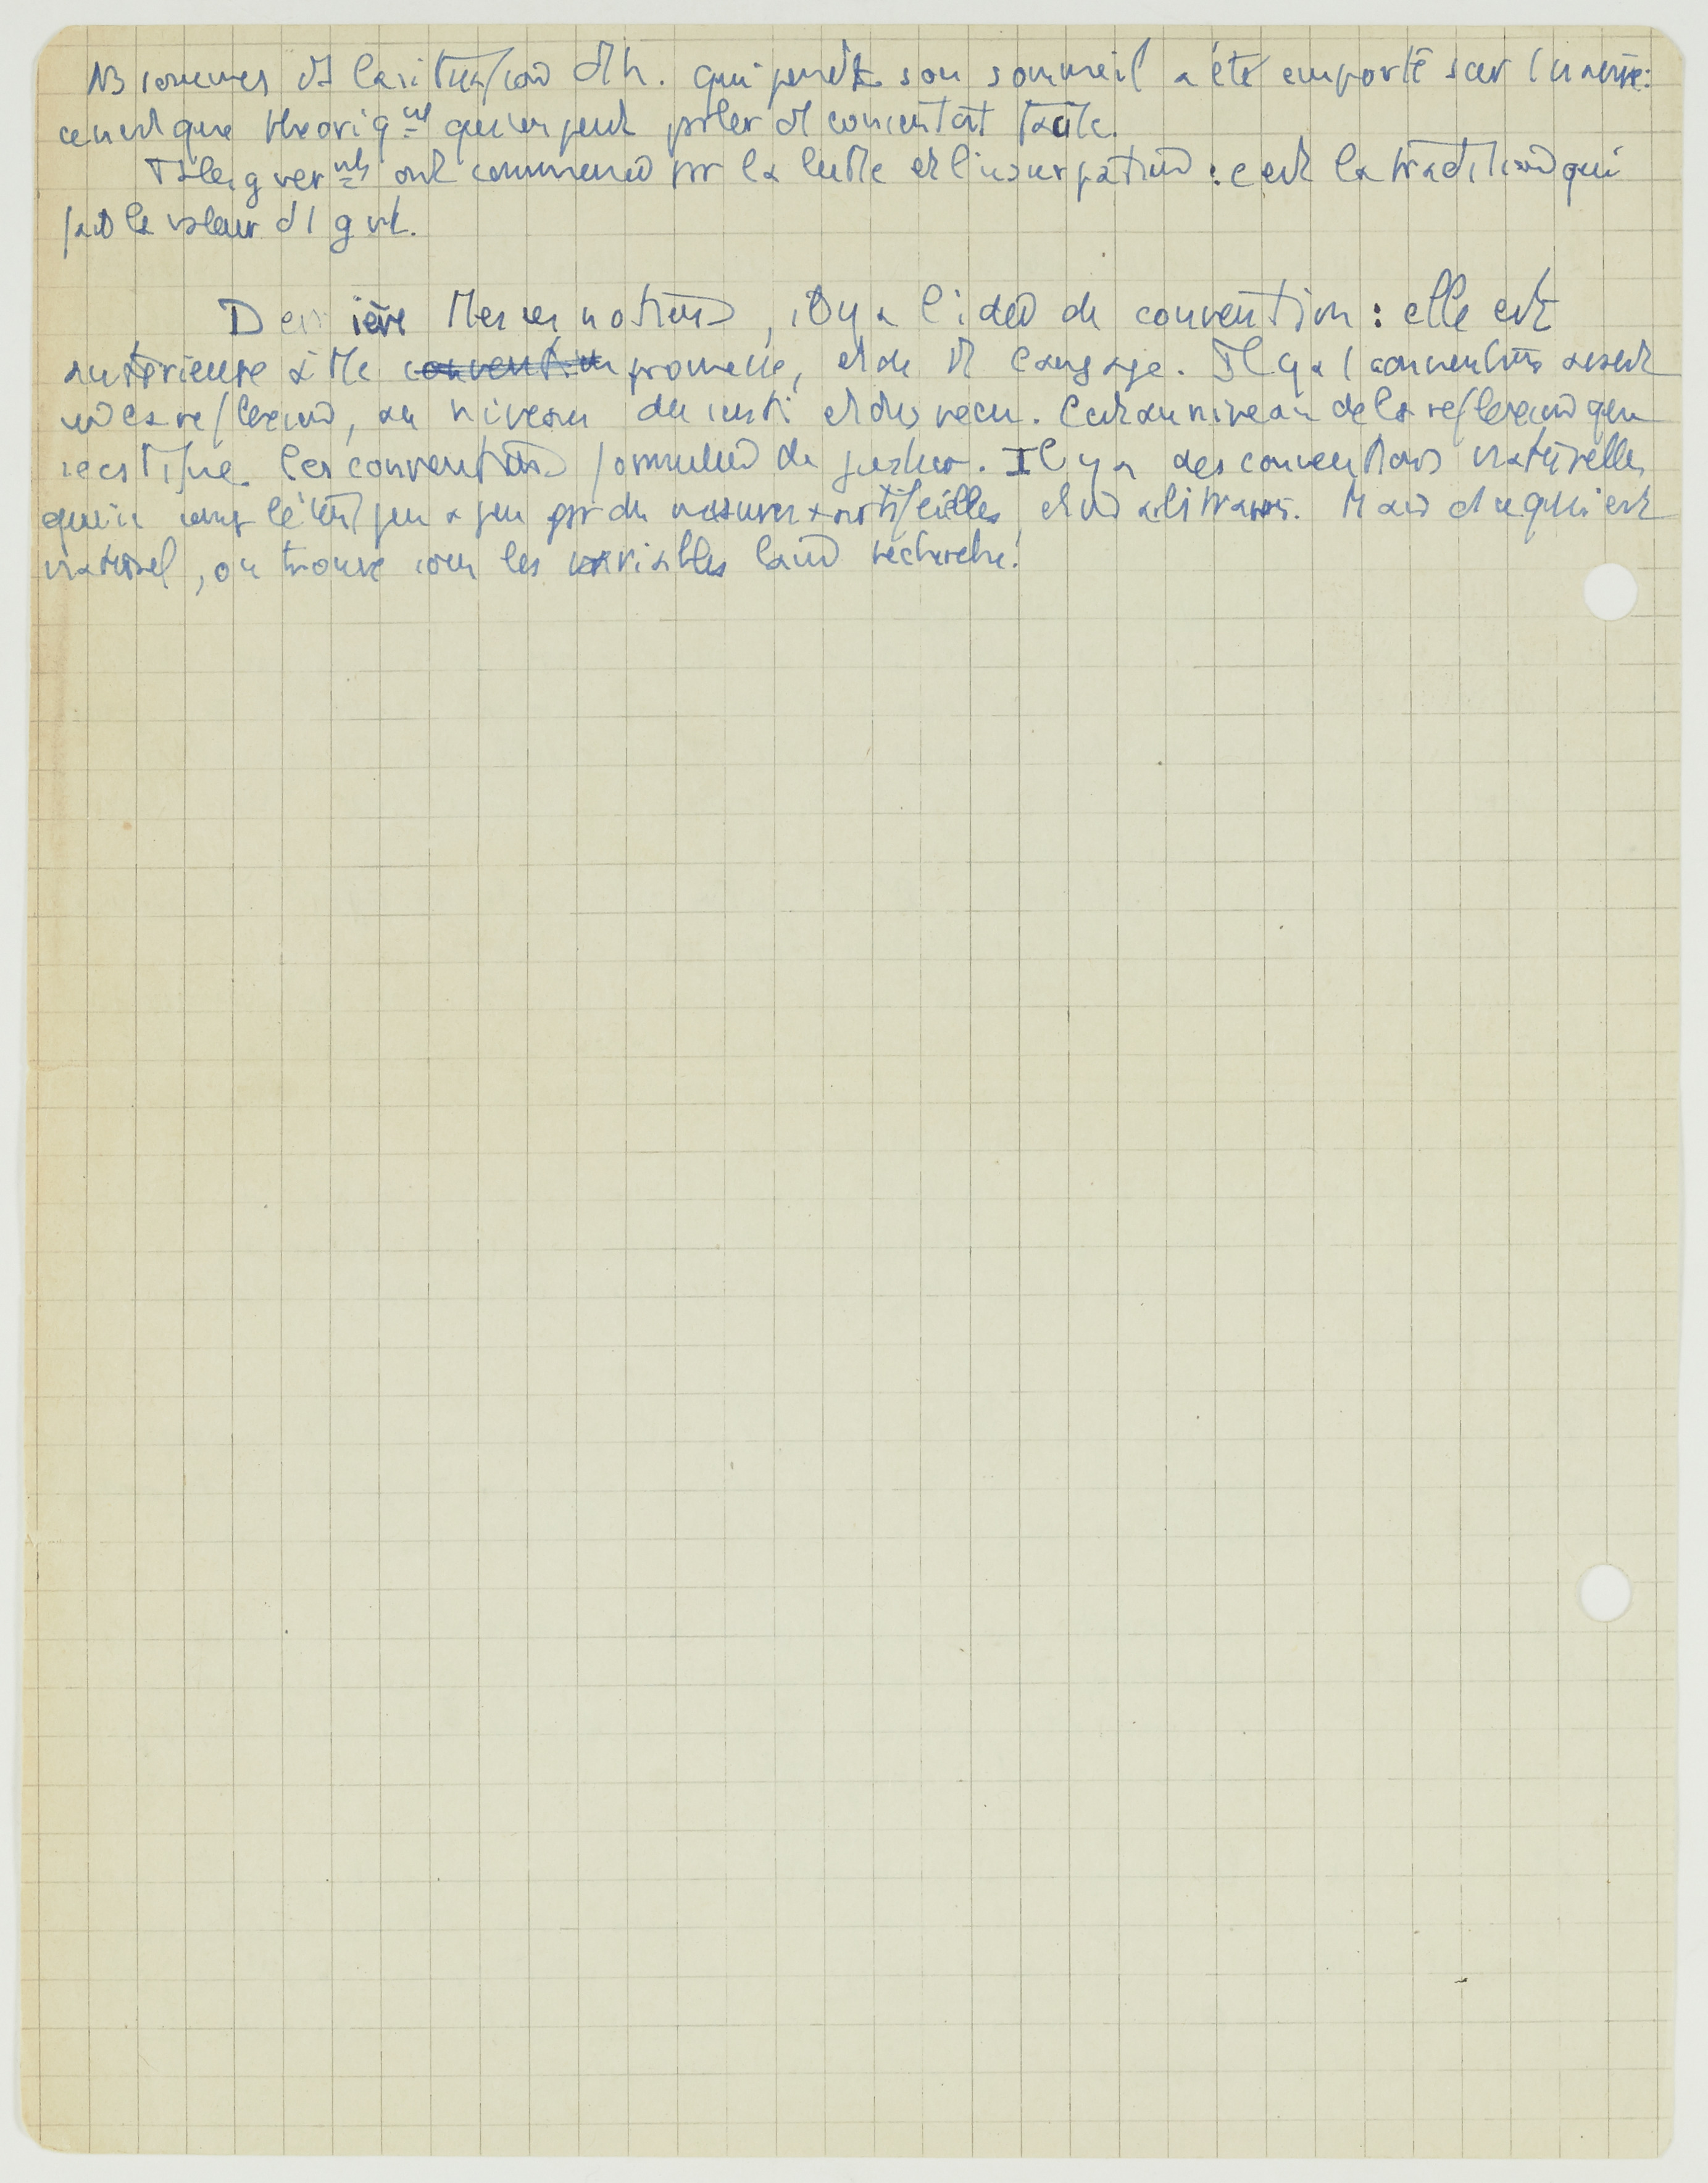 Ns sommes ds la situation d'h. qui pendt son sommeil a été emporté sur 1 navire:
ce n'est que theoriqnt qu'on peut prler de consentnt tacite.
Ts les gvernnts ont commencé pr la lutte et l'usurpation : c'est la tradition qui
fait la valeur d'1 gvt.
Derrière ttes ces notions, il y a l'idée de convention : elle est
antérieure à tte promesse, et de tt langage. Il y a 1 convention avant
la reflexion, au niveau du senti et du vecu. C'est au niveau de la reflexion que
se situe les conventions formulées de justice. Il y a des conventions naturelles
qui se compliquent peu a peu par des mesures artificielles et arbitraires. Mais ds ce qui est
naturel, on trouve les variables recherche!